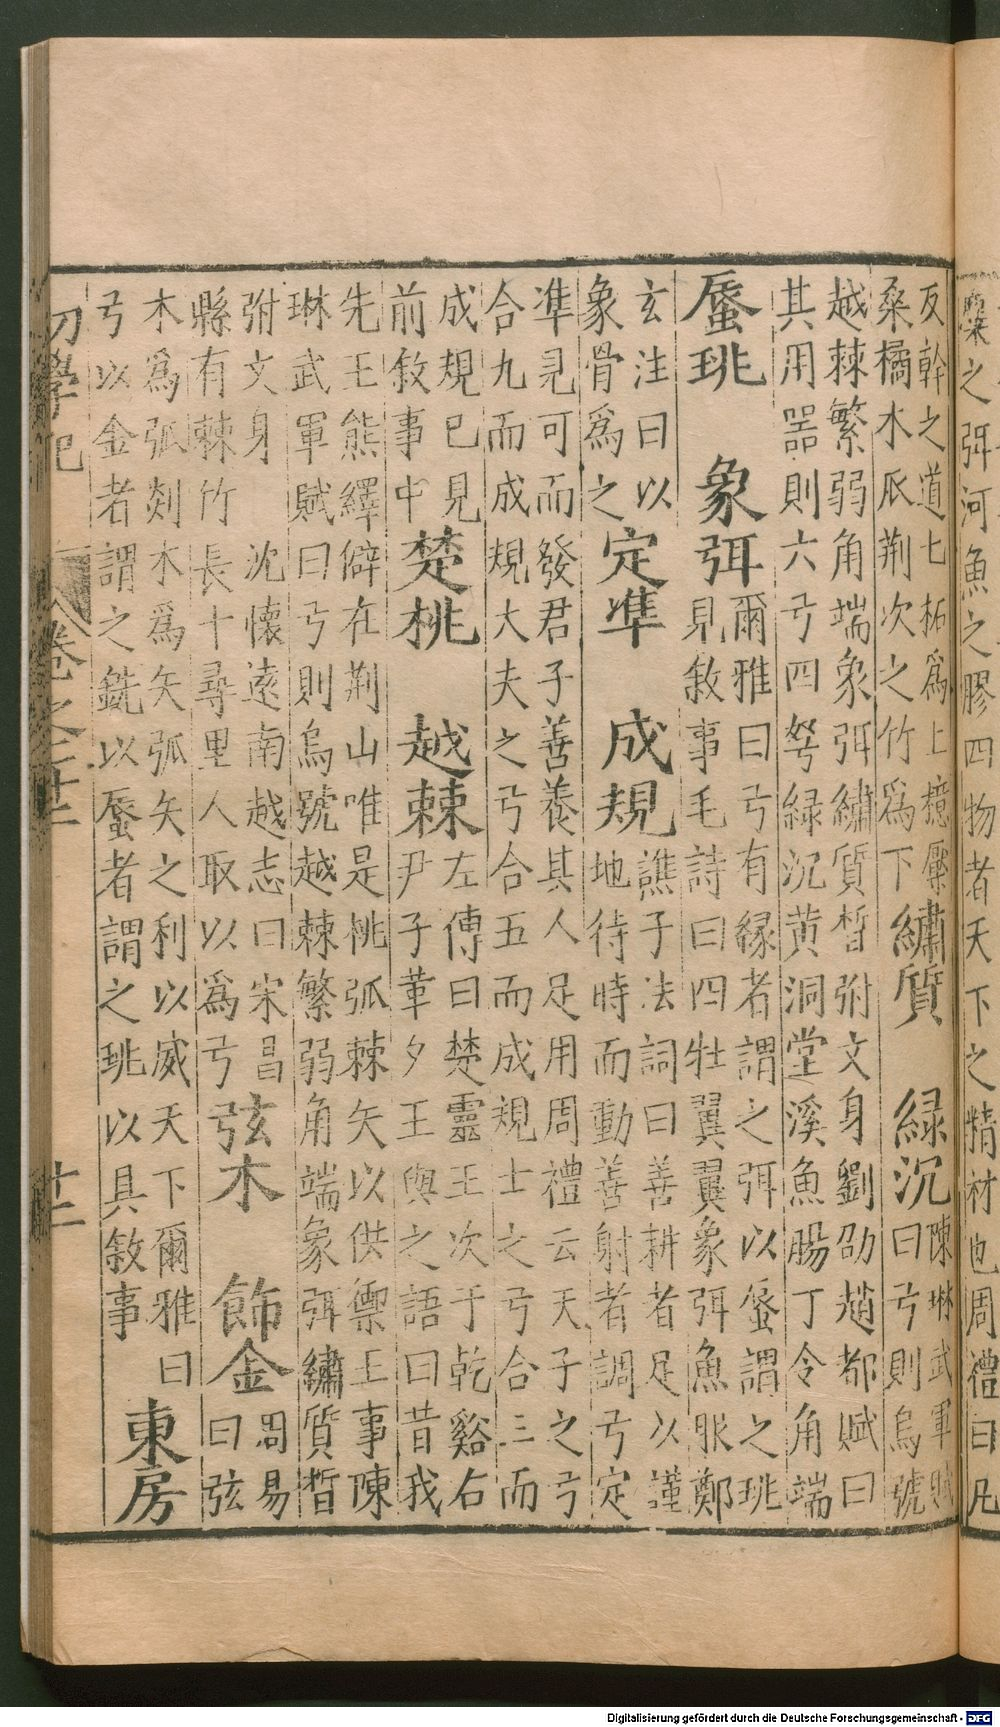 之弭河魚之膠四物者天下之精材也周禮曰凡
反幹之道七柘爲上檍檿
桑橘木瓜荆次之竹爲下
繡質 綠沉
陳琳武軍賦
曰弓則烏號
越棘繁弱角端象弭繡質晳弣文身劉劭趙都賦曰
其用器則六弓四弩緑沉黃洞堂溪魚腸丁令角端
蜃珧 象弭
爾雅曰弓有緣者謂之弭以蜃謂之珧
見敘事毛詩曰四牡翼翼象弭魚服鄭
玄注曰以
象骨爲之
定準 成規
譙子法詞曰善耕者足以謹
地待時而動善射者調弓定
準見可而發君子善養其人足用周禮云天子之弓
合九而成規大夫之弓合五而成規士之弓合三而
成規已見
前敘事中
楚桃 越棘
左傳曰楚靈王次于乾谿右
尹子革夕王與之語曰昔我
先王熊繹僻在荆山唯是桃弧棘矢以供禦王事陳
琳武軍賦曰弓則烏號越棘繁弱角端象弭繡質晳
弣文身 沈懷遠南越志曰宋昌
縣有棘竹長十尋里人取以爲弓
弦木 飾金
周易
曰弦
木爲弧剡木爲矢弧矢之利以威天下爾雅曰
弓以金者謂之銑以蜃者謂之珧以具敘事
東房
初學記 卷之二十二 十二
Digitalisierung gefördert durch die Deutsche Forschungsgemeinschaft - DFG